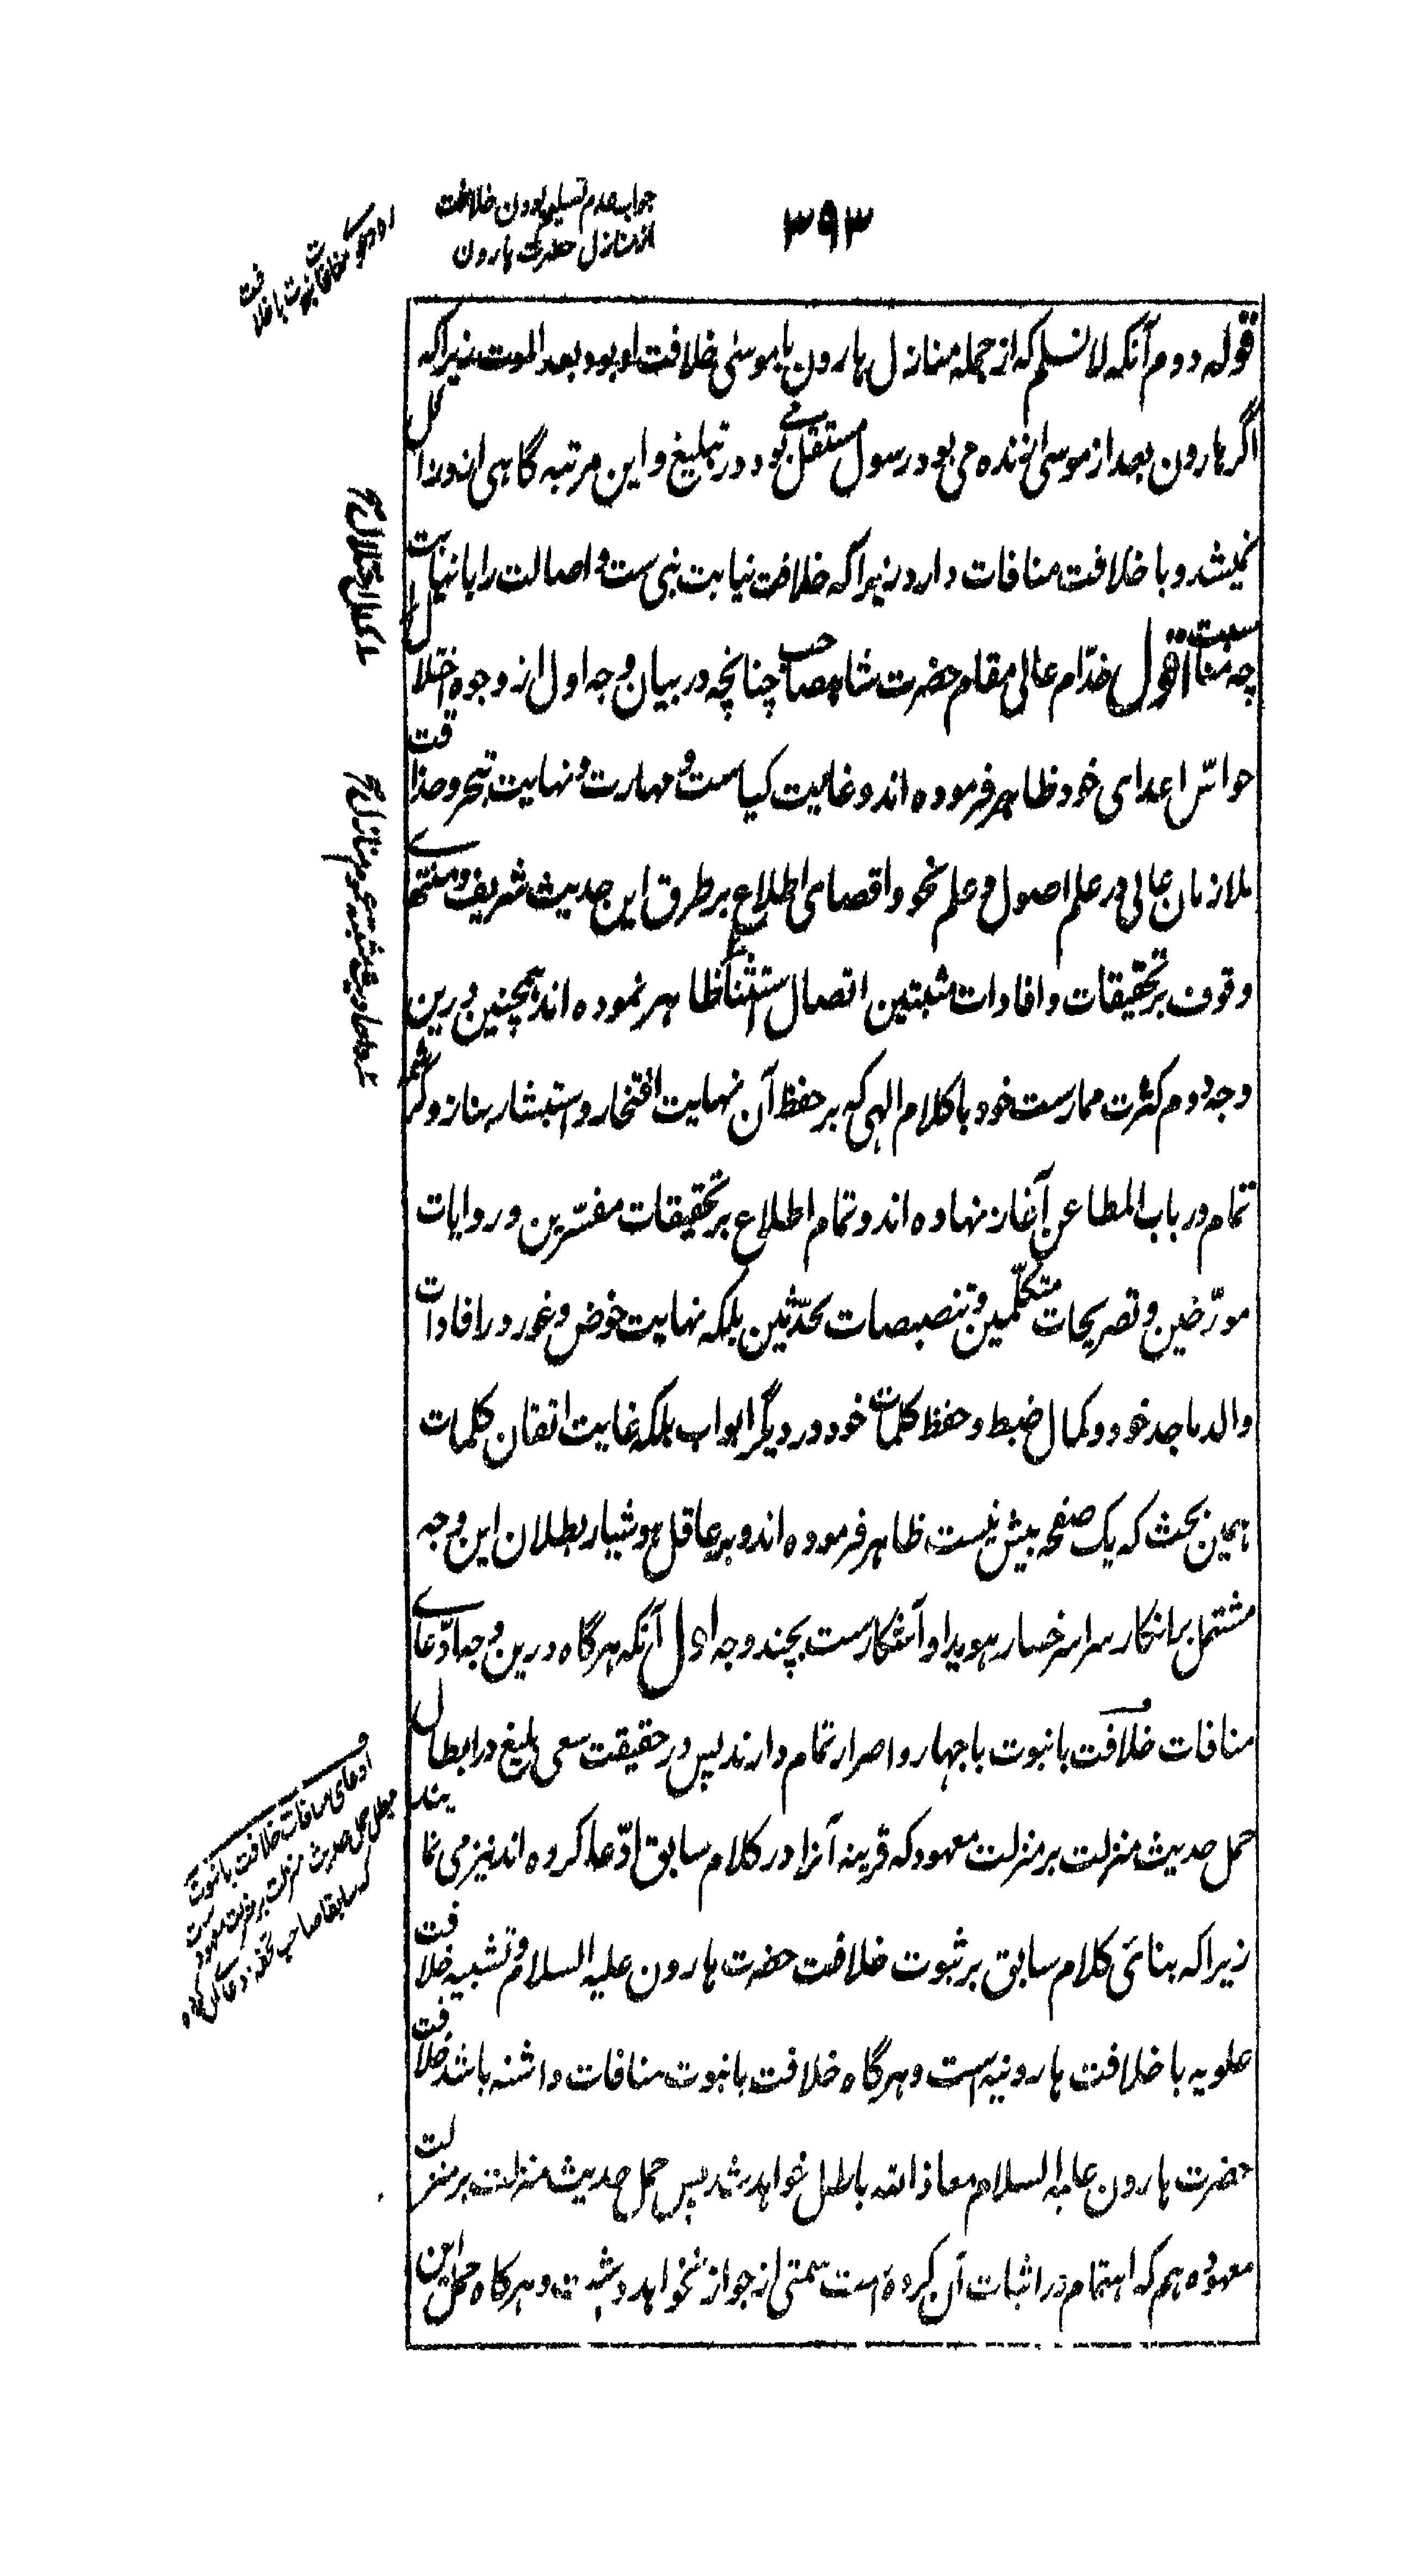 ۳۹۳
جواب عدم تسلیم بودن خلافت
از منازل حضرت هارون
قوله دوم آنکه لا نسلم که از جمله منازل هارون با موسی خلافت او بود بعد الموت زیرا که
اگر هارون بعد از موسی زنده می بود رسول مستقل می بود در تبلیغ و این مرتبه گاهی از و زائل
نمیشد و با خلافت منافات دارد زیرا که خلافت نیابت نبی ست و اصالت را با نیابت
چه مناسبت اقول خدّام عالی مقام حضرت شاهصاحب چنانچه در بیان وجه اول از وجوه اختلال
حواسّ اعدای خود ظاهر فرموده اند و غایت کیاست و مهارت و نهایت تبحر و حذاقت
ملازمان عالی در علم اصول و علم نحو و اقصای اطلاع بر طرق این حدیث شریف و منتهای
وقوف بر تحقیقات و افادات مثبتین اتصال استثنا ظاهر نموده اند همچنین درین
وجه دوم کثرت ممارست خود با کلام الهی که بر حفظ آن نهایت افتخار و استبشار بناز و کرشمه
تمام در باب المطاعن آغاز نهاده اند و تمام اطلاع بر تحقیقات مفسّرین و روایات
مورّخین و تصریحات متکلّمین و تنصیصات محدّثین بلکه نهایت خوض و غور در افادات
والد ماجد خود و کمال ضبط و حفظ کلمات خود در دیگر ابواب بلکه غایت اتقان کلمات
همین بحث که یک صفحه بیش نیست ظاهر فرموده اند و بر عاقل هوشیار بطلان این وجه
مشتمل بر انکار سراسر خسار هویدا و آشکارست بچند وجه اول آنکه هرگاه درین وجه ادّعای
منافات خلافت با نبوت باجهار و اصرار تمام دارند پس در حقیقت سعی بلیغ در ابطال
حمل حدیث منزلت بر منزلت معهود که قرینه آنرا در کلام سابق ادّعا کرده اند نیز می نمایند
زیرا که بنای کلام سابق بر ثبوت خلافت حضرت هارون علیه السلام و تشبیه خلافت
علویه با خلافت هارونیه است و هرگاه خلافت با نبوت منافات داشته باشد خلافت
حضرت هارون علیه السلام معاذ الله باطل خواهد شد پس حمل حدیث منزلت بر منزلت
معهوده هم که اهتمام در اثبات آن کرده است سمتی از جواز نخواهد داشت و هرگاه حمل این
ادعای منافات خلافت با نبوت
مبطل حمل حدیث منزلت بر منزلت معهوده ست
که سابقا صاحب تحفه